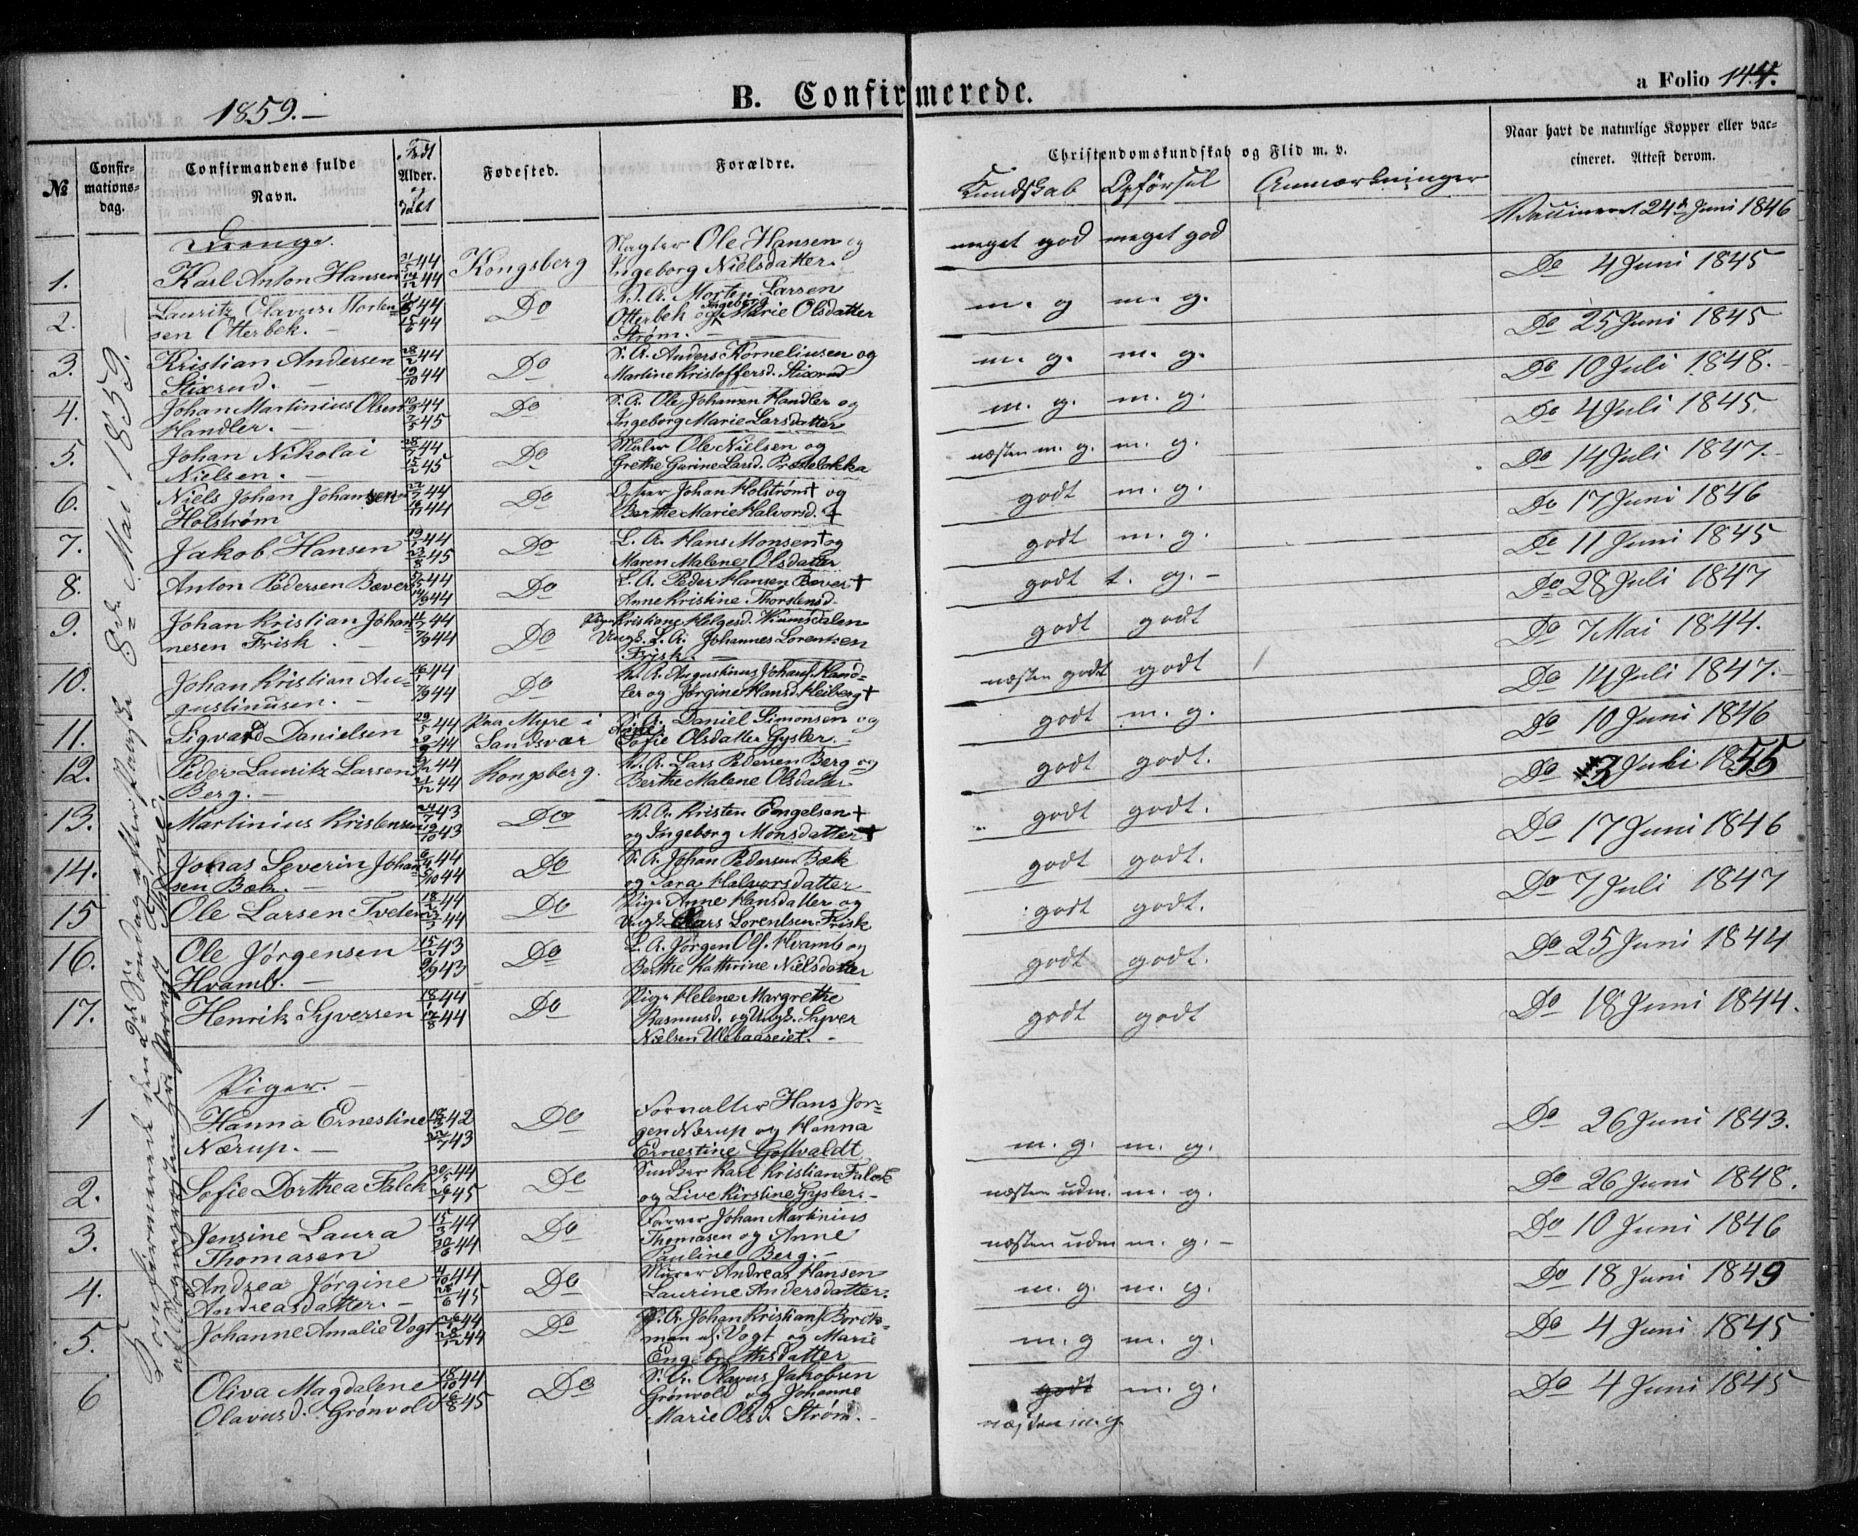 1859.-
B. Confirmerede.
a Folio 144.
№
Confir-
mations-
dag.
Confirmandens fulde
Navn.
Født
Alder.
Døbt
Fødested.
Forældre.
Christendomskundskab og Flid m. v.
Kundskab Opførsel Anmærkninger
Naar havt de naturlige Kopper eller vac-
cineret. Attest derom.
Konfirmerede den 2den Søndag efter Paaske 8de Mai 1859.-
Drenge.
1. Karl Anton Hansen 44 44 Kongsberg Slagter Ole Hansen og
Ingeborg Nielsdatter. meget god meget god Vaccineret 24de Juni 1846
2. Lauritz Olavus Morten=
sen Otterbek.- 44 44 Do Morten Larsen
Otterbek og Ingeborg Marie Olsdatter
Strøm.- m. g m. g. Do 4 Juni 1845
3. Kristian Andersen
Stixrud.- 28/2 44 19/10 44 Do S. A. Anders Korneliusen og
Martine Kristoffersd. Stixrud m. g. m. g. Do 25 Juni 1845
4. Johan Martinius Olsen
Handler.- 44 45 Do S. A. Ole Johansen Handler og
Ingeborg Marie Larsdatter m. g. m. g. Do 10 Juli 1848.
5. Johan Nikolai
Nielsen.- 44 45 Do Maler Ole Nielsen og
Grethe Gurine Larsd. Præsteløkka næsten m. g. m. g. Do 4 Juli 1845.
6. Niels Johan Johansen
Holstrøm 44 44 Do Johan Holstrøm † og
Berthe Marie Halvorsd. † godt m. g. Do 14 Juli 1847.-
7. Jakob Hansen 44 45 Do L. A. Hans Monsen † og
Maren Malene Olsdatter godt m. g. Do 17 Juni 1846
8. Anton Pedersen Bæver 44 44 Do L. A. Peder Hansen Bæver †
Anne Kristine Thorstensd. godt t. g.- Do 11 Juni 1845
9. Johan Kristian Johan=
nesen Frisk.- 44 44 Do Pige Kristiane Helgesd.
Ungk. L. A. Johannes Lorentsen
Frisk.- godt godt Do 28 Juli 1847
10. Johan Kristian Au=
gustinusen.- 44 44 Do Augustinus Johans. Hand=
ler og Jørgine Hansd. Heiberg † næsten godt godt Do 7 Mai 1844.
11. Sigvard Danielsen 44 44 Myre i
Sandsvær S. A. Daniel Simonsen og
Sofie Olsdatter Gysler.- godt m. g. Do 14 Juli 1847.
12. Peder Lauritz Larsen
Berg.- 44 44 Kongsberg. Lars Pedersen Berg og
Berthe Malene Olsdatter godt godt. Do 10 Juni 1846
13. Martinius Kristensen 43 43 Do Kristen Engelsen †
og Ingeborg Monsdatter † godt godt. Do 3 Juli 1855
14. Jonas Severin Johan=
sen Bæk.- 44 44 Do S. A. Johan Pedersen Bæk
og Sara Halvorsdatter godt godt. Do 17 Juni 1846
15 Ole Larsen Tveten 44 44 Do Pige Anne Hansdatter og
Ungk. Lars Lorentsen Frisk godt godt. Do 7 Juli 1847
16. Ole Jørgensen
Hvamb.- 43 43 Do L. A. Jørgen Ols. Hvamb og
Berthe Kathrine Nielsdatter godt godt. Do 25 Juni 1844
17. Henrik Syversen 44 44 Do Pige Helene Margrethe
Rasmusd. og Ungk. Syver
Nielsen Ulebaaseiet.- godt godt Do 18 Juni 1844.
Piger.-
1 Hanna Ernestine
Nærup.- 42 43 Do Forvalter Hans Jør=
gen Nærup og Hanna
Ernestine Gottvaldt m. g. m. g. Do 26 Juni 1843.
2. Sofie Dorthea Falck 44 45 Do Karl Kristian Falck
og Live Kirstine Gysler.- næsten udm. m. g. Do 26 Juni 1848.
3. Jensine Laura
Thomasen 15/3 44 30/6 44 Do Farver Johan Martinius
Thomasen og Anne
Pauline Berg.- næsten udm m. g.- Do 10 Juni 1846
4. Andrea Jørgine
Andreasdatter.- 44 45 Do Murer Andreas Hansen
Laurine Andersdatter. m. g. m. g. Do 18 Juni 1849
5. Johanne Amalie Vogt 44 44 Do Johan Kristian
Vogt og Marie
Engebrethsdatter m. g m. g. Do 4 Juni 1845
6 Oliva Magdalene
Olavusd. Grønvold 18/10 44 45 Do S. A. Olavus Jakobsen
Grønvold og Johanne
Marie Olsd. Strøm.- godt m. g. Do 4 Juni 1845
næsten m. g.